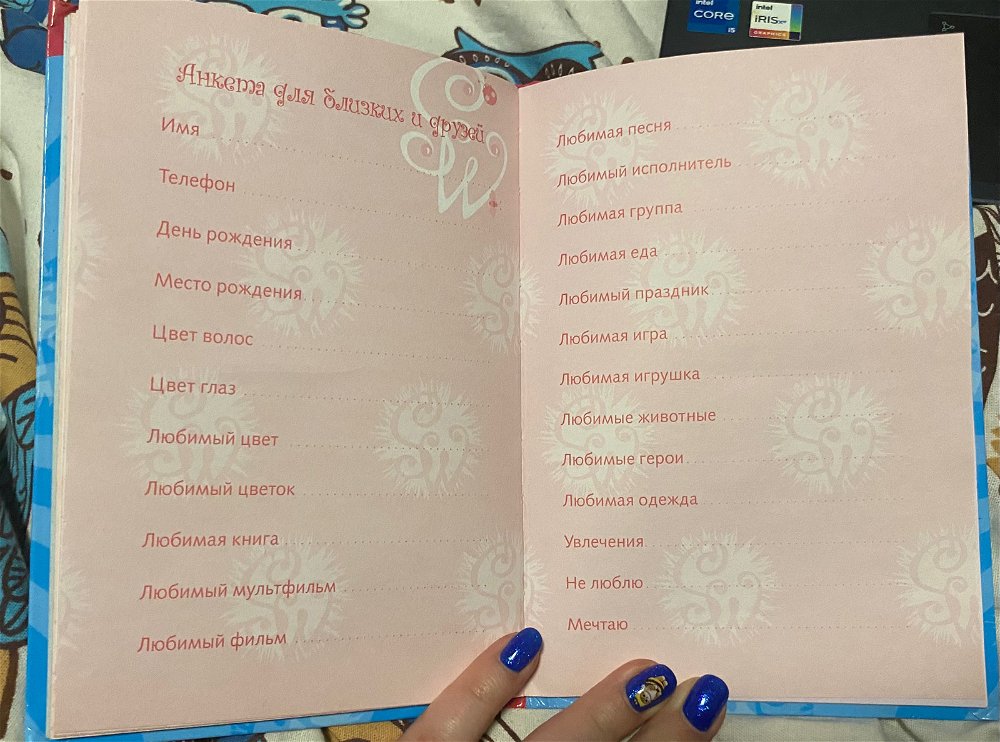 Анкета для близких и друзей
Имя
Телефон
День рождения
Место рождения
Цвет волос
Цвет глаз
Любимый цвет
Любимый цветок
Любимая книга
Любимый мультфильм
Любимый фильм
Любимая песня
Любимый исполнитель
Любимая группа
Любимая еда
Любимый праздник
Любимая игра
Любимая игрушка
Любимые животные
Любимые герои
Любимая одежда
Увлечения
Не люблю
Мечтаю
intel
CORE
i5
intel
iRIS xe
GRAPHICS